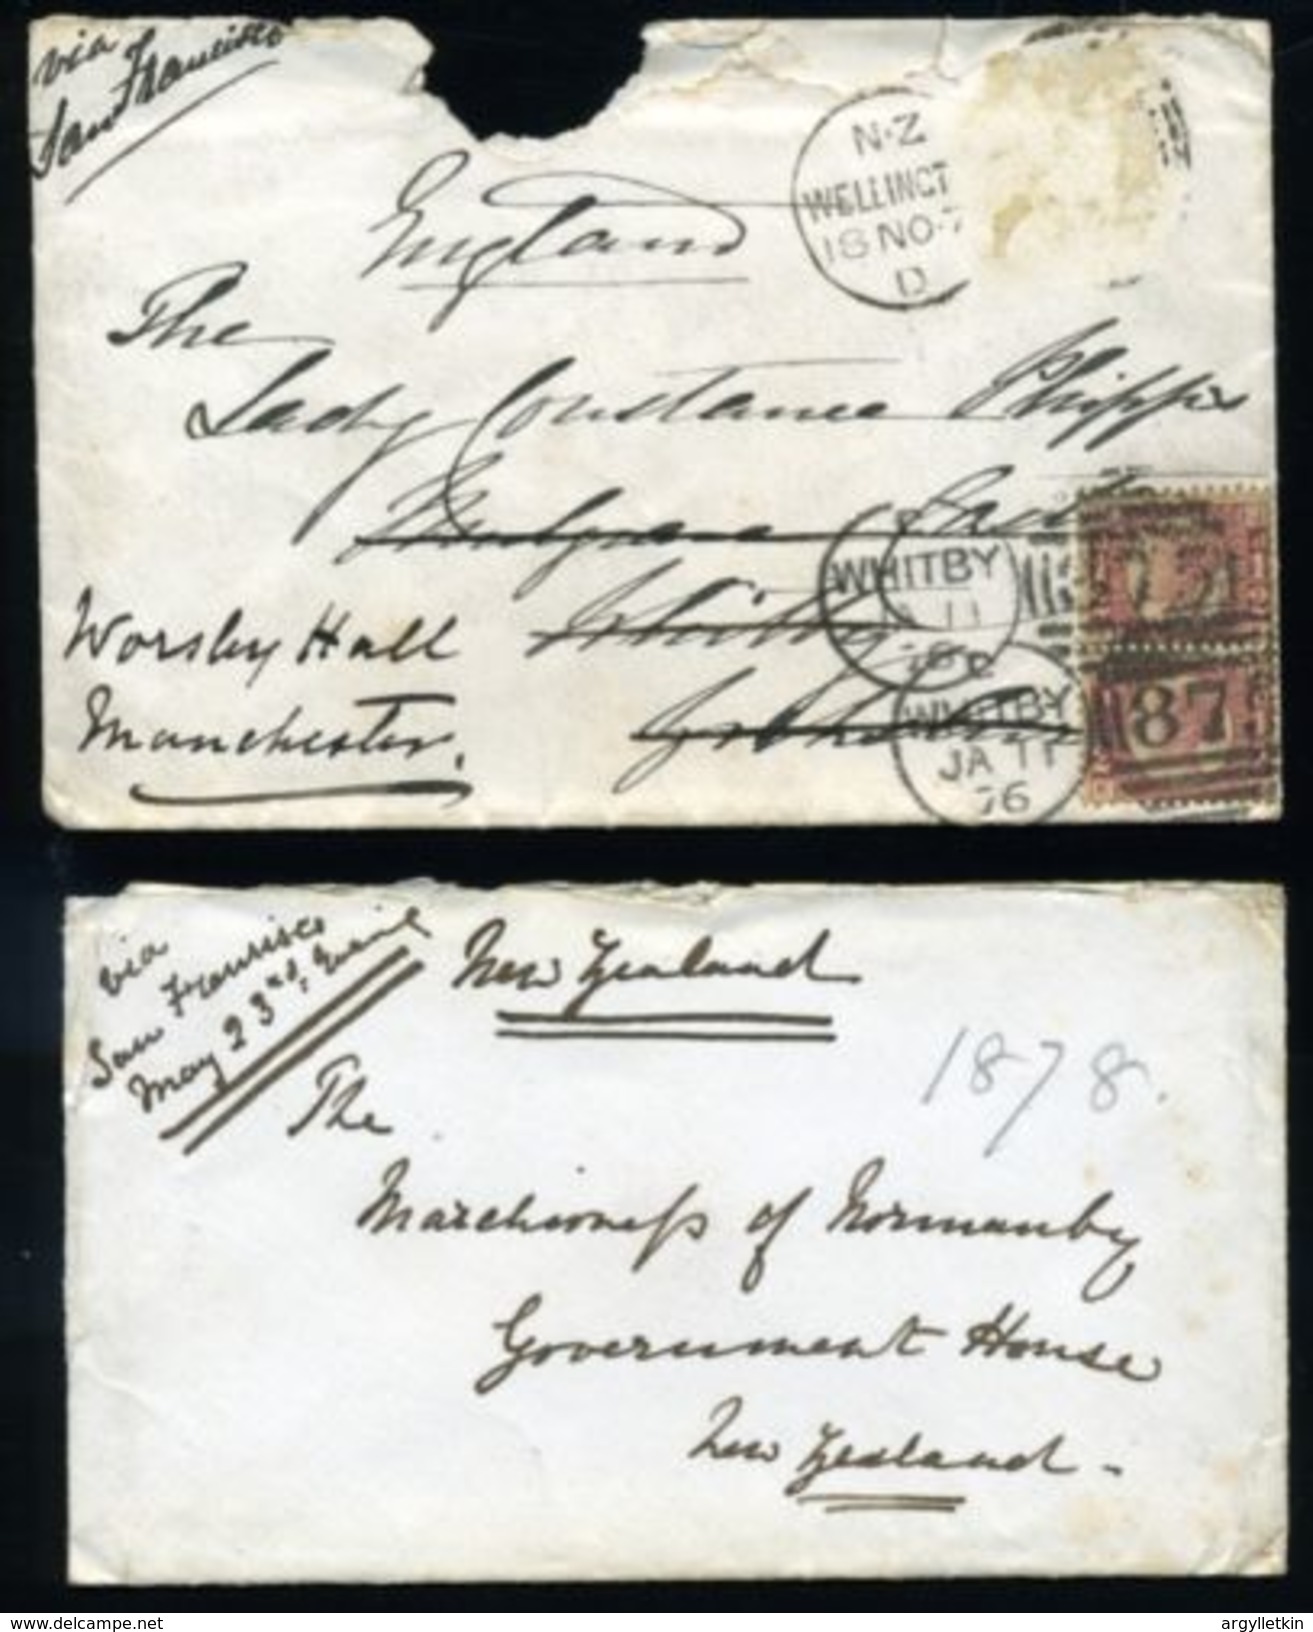 via
San Francisco
England
N·Z
WELLINGT
18 NO·7
D
The
Lady Constance Phipps
Mulgrave Cast
Whitby
Yorkshire
Worsley Hall
Manchester.
WHITBY
JA 11
WHITBY
JA 11
76
872
87
via
San Francisco
May 23rd, Mail
New Zealand
1878.
The
Marchioness of Normanby
Government House
New Zealand -
www.delcampe.net
argylletkin